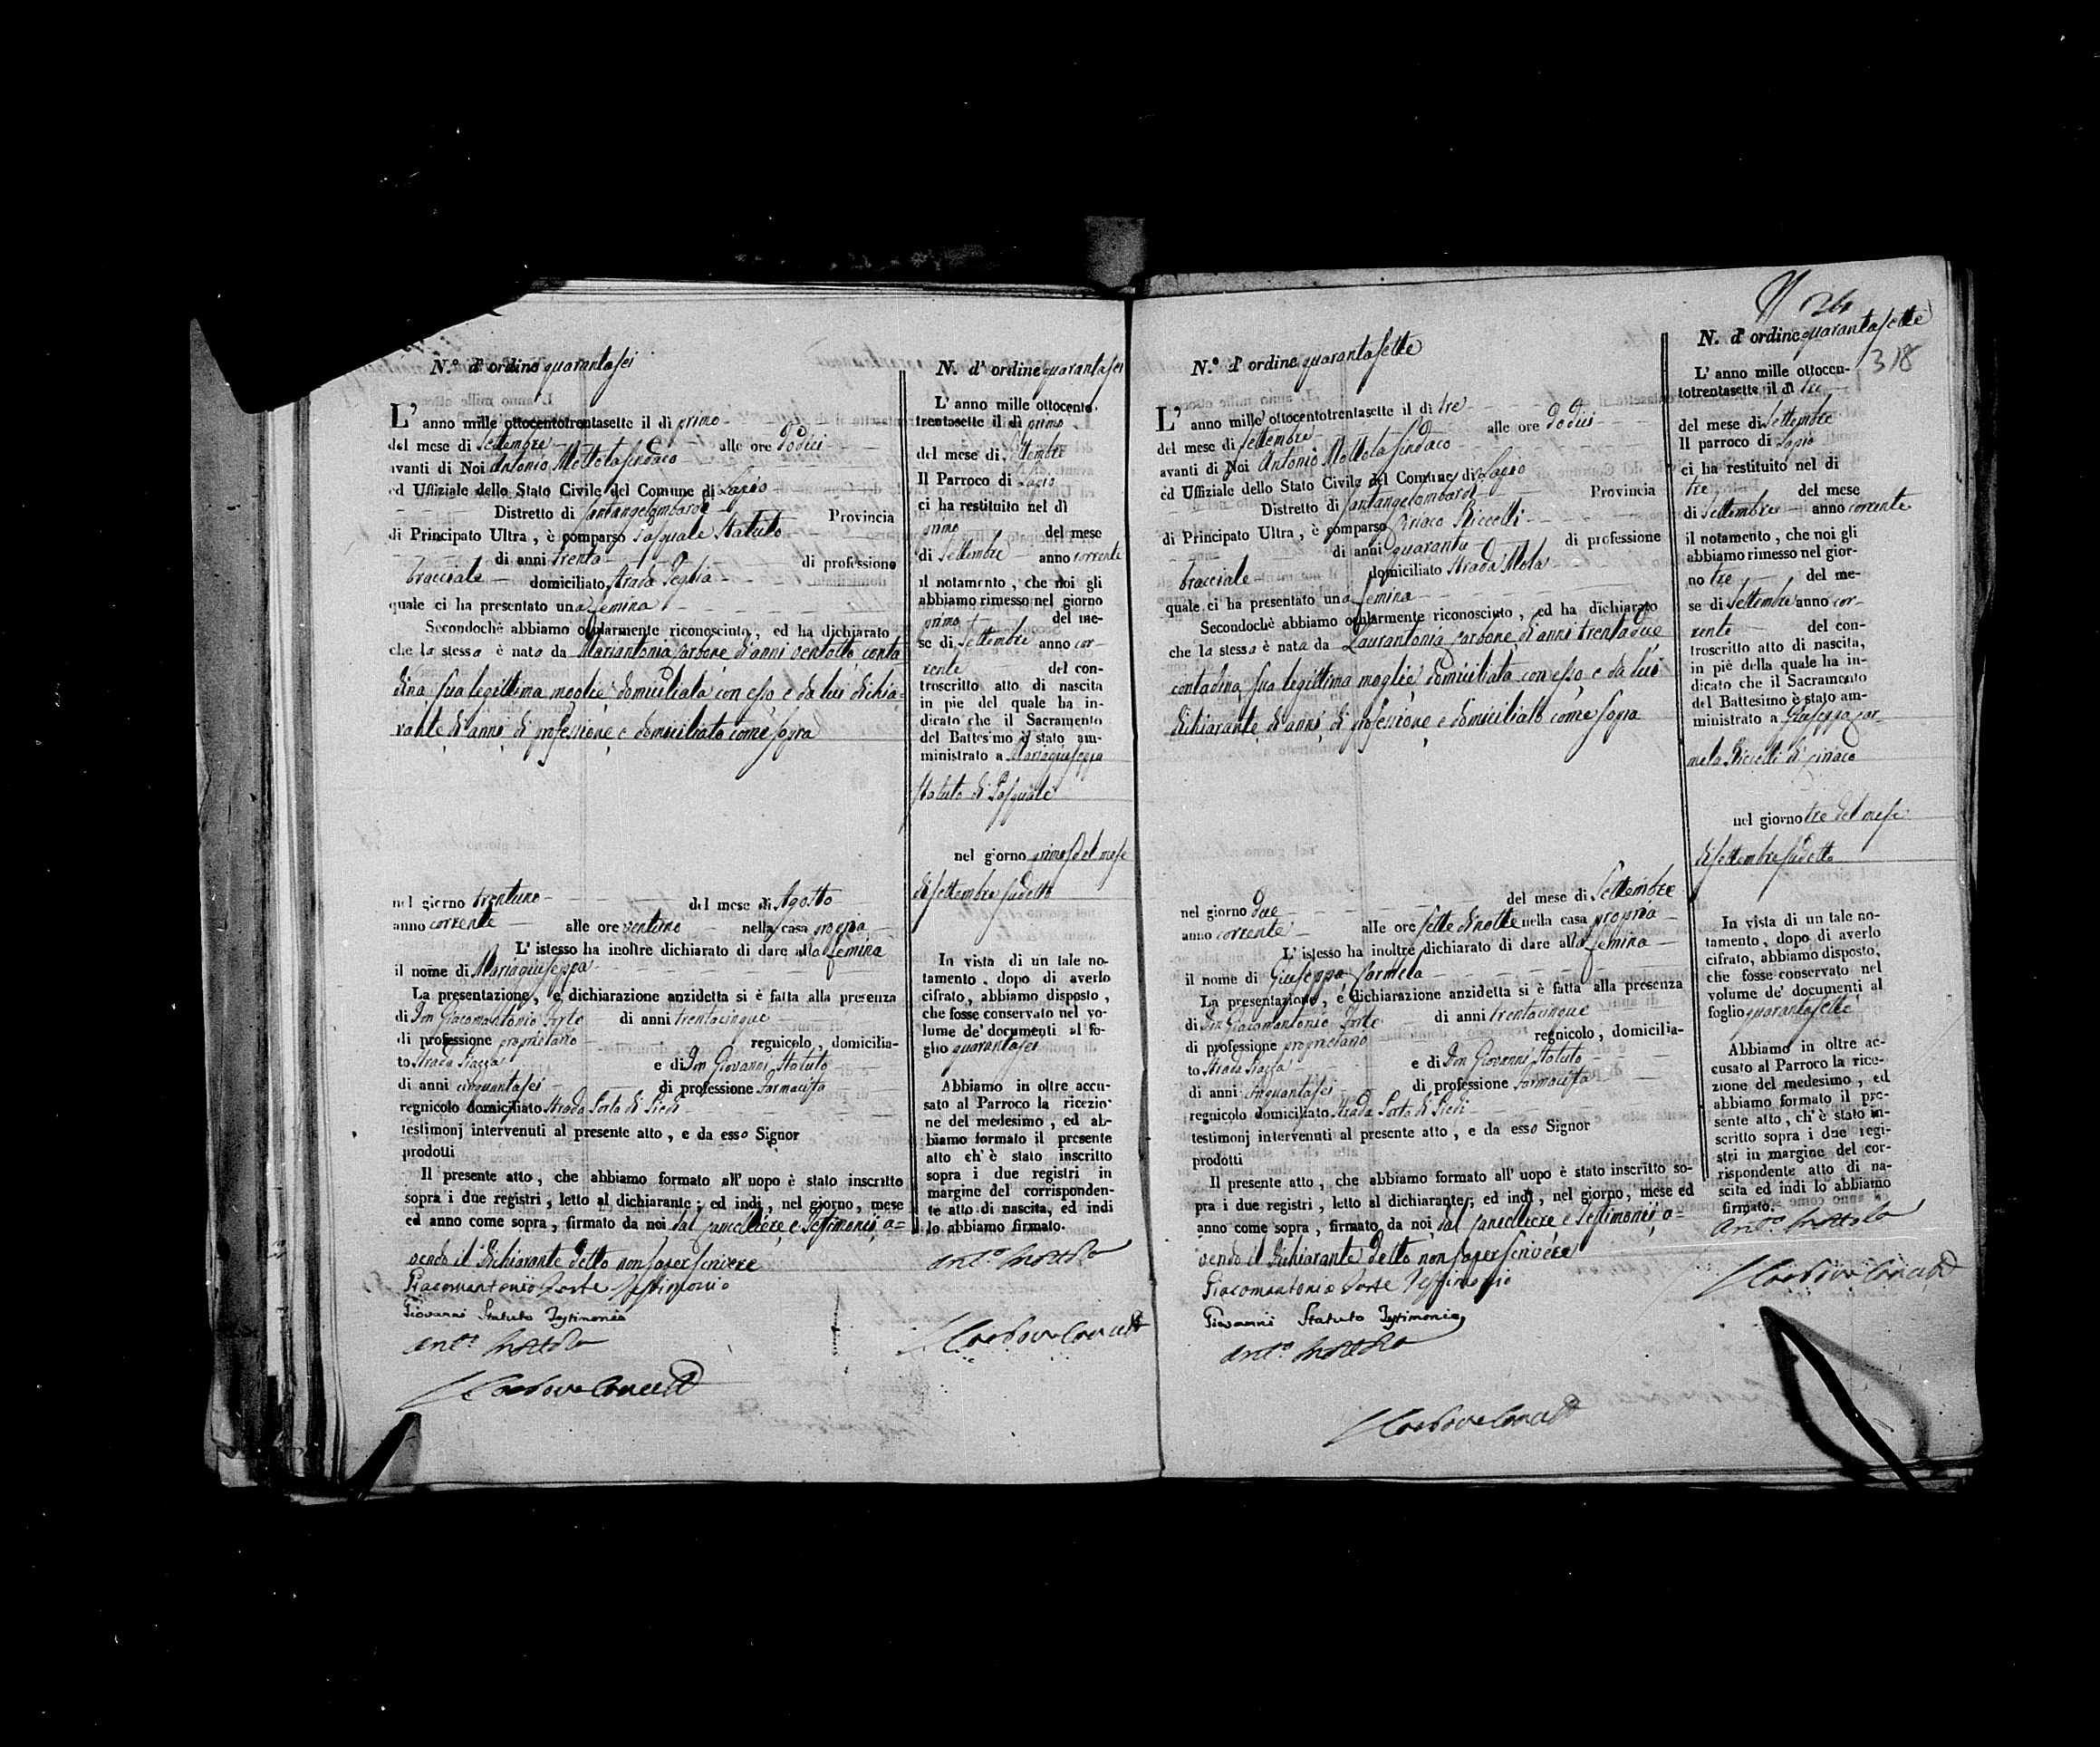 N.º d' ordine quarantasei
L' anno mille ottocentotrentasette il dì primo
del mese di Settembre alle ore Dodici
avanti di Noi Antonio Mottola Sindaco
ed Uffiziale dello Stato Civile del Comune di Lapio
Distretto di Santangelombardi Provincia
di Principato Ultra , è comparso Pasquale Statuto
di anni trenta di professione
bracciale domiciliato Strada Teglia
quale ci ha presentato una femina
Secondochè abbiamo ocularmente riconosciuto , ed ha dichiarato
che la stessa è nata da Mariantonia Carbone d'anni ventotto conta
dina sua legittima moglie domiciliata con esso e da lui dichia=
rante di anni di professione e domiciliato come sopra
nel giorno trentuno del mese di Agosto
anno corrente alle ore ventuno nella casa propria
L' istesso ha inoltre dichiarato di dare alla femina
il nome di Mariagiuseppa
La presentazione , e dichiarazione anzidetta si è fatta alla presenza
di Don Giacomantonio Forte di anni trentacinque
di professione proprietario regnicolo , domicilia-
to Strada Piazza e di Don Giovanni Statuto
di anni cinquantasei di professione Farmacista
regnicolo domiciliato Strada Porta di Piedi
testimonj intervenuti al presente atto , e da esso Signor
prodotti
Il presente atto , che abbiamo formato all' uopo è stato inscritto
sopra i due registri , letto al dichiarante ; ed indi , nel giorno , mese
ed anno come sopra , firmato da noi dal Cancelliere e Testimonii, a=
vendo il Dichiarante detto non saper scrivere
Giacomantonio Forte Testimonio
Giovanni Statuto Testimonio
Ant.º Mottola
N. d' ordine quarantasei
L' anno mille ottocento-
trentasette il dì primo
del mese di Settembre
Il Parroco di Lapio
ci ha restituito nel dì
primo del mese
di Settembre anno corrente
il notamento , che noi gli
abbiamo rimesso nel giorno
primo del me-
se di Settembre anno cor-
rente del con-
troscritto atto di nascita
in piè del quale ha in-
dicato che il Sacramento
del Battesimo è stato am-
ministrato a Mariagiuseppa
Statuto di Pasquale
nel giorno primo del mese
di Settembre sudetto
In vista di un tale no-
tamento , dopo di averlo
cifrato , abbiamo disposto ,
che fosse conservato nel vo-
lume de' documenti al fo-
glio quarantasei
Abbiamo in oltre accu-
sato al Parroco la ricezio-
ne del medesimo , ed ab-
biamo formato il presente
atto ch' è stato inscritto
sopra i due registri in
margine del corrisponden-
te atto di nascita, ed indi
lo abbiamo firmato.
Ant.º Mottola
N.º d' ordine quarantasette
L' anno mille ottocentotrentasette il dì tre
del mese di Settembre alle ore dodici
avanti di Noi Antonio Mottola Sindaco
ed Uffiziale dello Stato Civile del Comune di Lapio
Distretto di Santangelombardi Provincia
di Principato Ultra , è comparso Ciriaco Riccelli
di anni quaranta di professione
bracciale domiciliato Strada Mola
quale ci ha presentato una femina
Secondochè abbiamo ocularmente riconosciuto , ed ha dichiarato
che la stessa è nata da Laurantonia Carbone di anni trentadue
contadina sua legittima moglie domiciliata con esso e da lui
dichiarante di anni, di professione e domiciliato come sopra
nel giorno due del mese di Settembre
anno corrente alle ore sette di notte nella casa propria
L' istesso ha inoltre dichiarato di dare alla femina
il nome di Giuseppa Carmela
La presentazione , e dichiarazione anzidetta si è fatta alla presenza
di Don Giacomantonio Forte di anni trentacinque
di professione proprietario regnicolo , domicilia-
to Strada Piazza e di Don Giovanni Statuto
di anni cinquantasei di professione Farmacista
regnicolo domiciliato Strada Porta di Piedi
testimonj intervenuti al presente atto , e da esso Signor
prodotti
Il presente atto , che abbiamo formato all' uopo è stato inscritto so-
pra i due registri , letto al dichiarante ; ed indi , nel giorno , mese ed
anno come sopra , firmato da noi dal Cancelliere e Testimonii, a=
vendo il Dichiarante detto non saper scrivere
Giacomantonio Forte Testimonio
Giovanni Statuto Testimonio
Ant.º Mottola
24
N. d' ordine quarantasette
318
L' anno mille ottocen-
totrentasette il dì tre
del mese di Settembre
Il parroco di Lapio
ci ha restituito nel di
tre del mese
di Settembre anno corrente
il notamento , che noi gli
abbiamo rimesso nel gior-
no tre del me-
se di Settembre anno cor-
rente del con-
troscritto atto di nascita,
in piè della quale ha in-
dicato che il Sacramento
del Battesimo è stato am-
ministrato a Giuseppa Car-
mela Riccelli di Ciriaco
nel giorno tre del mese
di Settembre sudetto
In vista di un tale no-
tamento , dopo di averlo
cifrato, abbiamo disposto,
che fosse conservato nel
volume de' documenti al
foglio quarantasette
Abbiamo in oltre ac-
cusato al Parroco la rice-
zione del medesimo , ed
abbiamo formato il pre-
sente atto , ch' è stato in-
scritto sopra i due regi-
stri in margine del cor-
rispondente atto di na-
scita ed indi lo abbiamo
firmato.
Ant.º Mottola